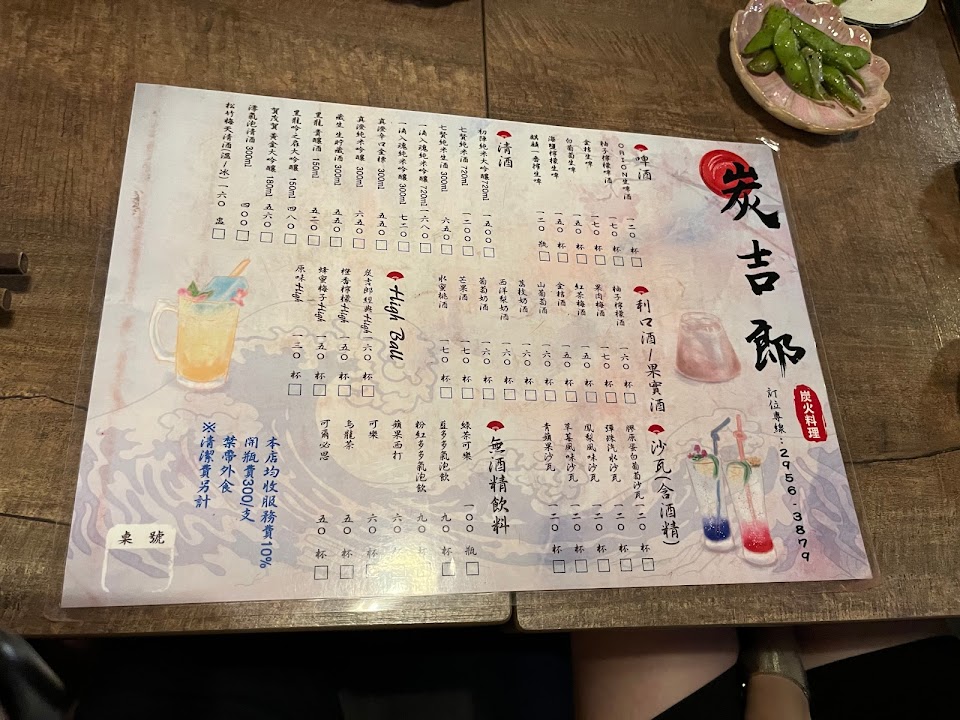 炭吉郎
炭火料理
訂位專線：2956-3879
啤酒
ORION生啤酒 一二〇 杯
柚子檸檬啤酒 一七〇 杯
金桔生啤 一七〇 杯
白葡萄生啤 一五〇 杯
海鹽檸檬生啤 一二〇 杯
麒麟一番搾生啤 一二〇 瓶
清酒
七賢純米酒 720ml 一二〇〇
七賢純米生酒 300ml 六五〇
一滴入魂純米吟釀 720ml 一六八〇
一滴入魂純米吟釀 300ml 七二〇
真澄辛口金標 300ml 五五〇
真澄純米吟釀 300ml 六五〇
藏生生貯藏酒 300ml 五五〇
黑龍貴釀酒 150ml 五二〇
黑龍吟之扉大吟釀 150ml 四八〇
賀茂賀黃金大吟釀 180ml 五六〇
澪氣泡清酒 300ml 四〇〇
松竹梅天清酒(溫/冰) 一六〇 壺
利口酒/果實酒
柚子檸檬酒 一六〇 杯
果肉梅酒 一七〇 杯
紅茶梅酒 一五〇 杯
金桔酒 一五〇 杯
山葡萄酒 一六〇 杯
荔枝奶酒 一六〇 杯
西洋梨奶酒 一六〇 杯
葡萄奶酒 一六〇 杯
芒果酒 一七〇 杯
水蜜桃酒 一七〇 杯
High Ball
炭吉郎經典High 一六〇 杯
橙香檸檬High 一五〇 杯
蜂蜜梅子High 一五〇 杯
原味High 一三〇 杯
沙瓦(含酒精)
膠原蛋白葡萄沙瓦 一二〇 杯
彈珠汽水沙瓦 一二〇 杯
鳳梨風味沙瓦 一二〇 杯
草莓風味沙瓦 一二〇 杯
青蘋果沙瓦 一二〇 杯
無酒精飲料
綠茶可樂 一〇〇 瓶
荔多多氣泡飲 九〇 杯
粉紅多多氣泡飲 九〇 杯
蘋果西打 六〇 杯
可樂 六〇 杯
烏龍茶 五〇 杯
可爾必思 五〇 杯
本店均收服務費10%
開瓶費300/支
禁帶外食
※清潔費另計
桌號